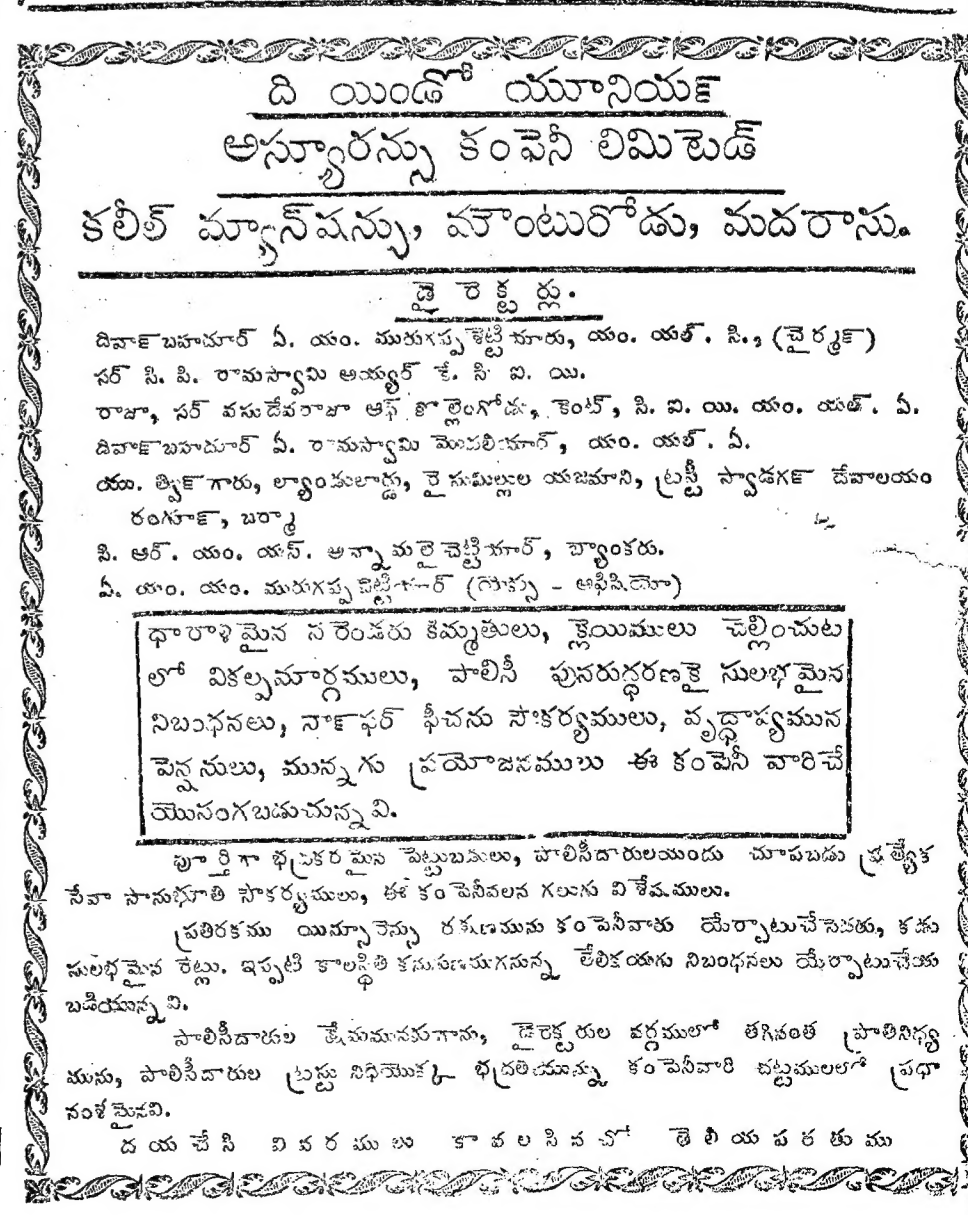 ది యిండో యూనియ౯
అస్యూరన్సు కంపెనీ లిమిటెడ్
కలీల్ మ్యాన్‌షన్సు, మౌంటురోడు, మదరాసు.
డైరెక్టర్లు.
దివా౯ బహదూర్ ఏ. యం. మురుగప్ప శెట్టియారు, యం. యల్. సి., (చైర్మ౯)
సర్ సి. పి. రామస్వామి అయ్యర్ కే. సి. ఐ. యి.
రాజా, సర్ వసుదేవరాజా ఆఫ్ కొల్లెంగోడు, కెంట్, సి. ఐ. యి. యం. యల్. ఏ.
దివా౯ బహదూర్ ఏ. రామస్వామి మొదలియార్, యం. యల్. ఏ.
యు. త్వి౯ గారు, ల్యాండులార్డు, రైసుమిల్లుల యజమాని, ట్రస్టీ స్వాడగ౯ దేవాలయం
రంగూ౯, బర్మా
సి. ఆర్. యం. యస్. అన్నామలై చెట్టియార్, బ్యాంకరు.
ఏ. యం. యం. మురుగప్ప చెట్టియార్ (యెక్సు - ఆఫిసియో)
ధారాళమైన సరెండరు కిమ్మతులు, క్లెయిములు చెల్లించుట
లో వికల్పమార్గములు, పాలిసీ పునరుద్ధరణకై సులభమైన
నిబంధనలు, నా౯ ఫర్ ఫీచను సౌకర్యములు, వృద్ధాప్యమున
పెన్షనులు, మున్నగు ప్రయోజనములు ఈ కంపెనీ వారిచే
యొసంగబడుచున్నవి.
పూర్తిగా భద్రకరమైన పెట్టుబడులు, పాలిసీదారులయందు చూపబడు ప్రత్యేక
సేవా సానుభూతి సౌకర్యములు, ఈ కంపెనీవలన గలుగు విశేషములు.
ప్రతిరకము యిన్సూరెన్సు రక్షణమును కంపెనీవారు యేర్పాటుచేసెదరు, కడు
సులభమైన రేట్లు. ఇప్పటి కాలస్థితి కనుగుణముగనున్న తేలికయగు నిబంధనలు యేర్పాటుచేయ
బడియున్నవి.
పాలిసీదారుల క్షేమమునకుగాను, డైరెక్టరుల వర్గములో తగినంత ప్రాతినిధ్య
మును, పాలిసీదారుల ట్రస్టు నిధియొక్క భద్రతియున్ను కంపెనీవారి చట్టములలో ప్రధా
నంశమైనవి.
దయచేసి వివరములు కావలసినచో తెలియపరతుము